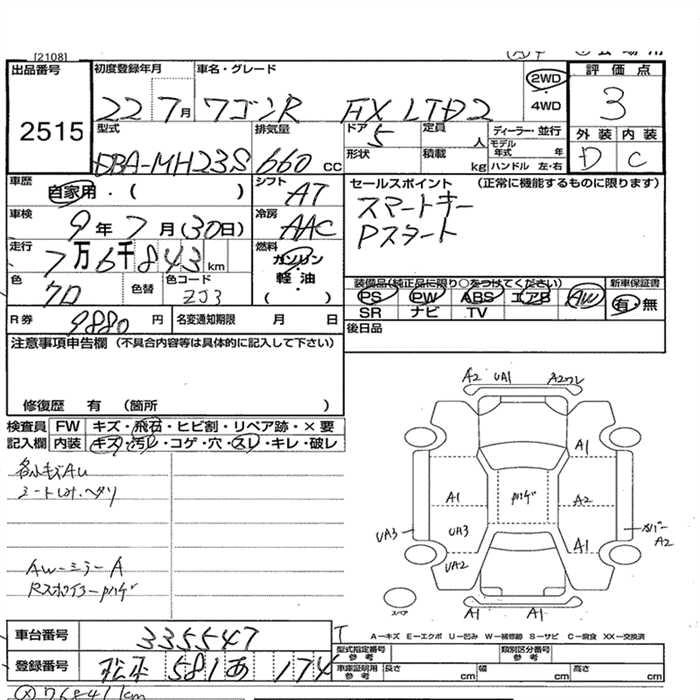 [2108]
出品番号
2515
初度登録年月
22 7月
車名・グレード
ワゴンR FX LTD2
2WD
・
4WD
評価点
3
型式
DBA-MH23S
排気量
660 cc
ドア 5
形状
定員 人
積載 kg
ディーラー・並行
モデル年式 年
ハンドル 左・右
外装 内装
D C
車歴
自家用・( )
シフト
AT
セールスポイント (正常に機能するものに限ります)
スマートキー
Pスタート
車検
9年7月(30日)
冷房
AAC
走行
7万6千843km
燃料
ガソリン
軽・油
( )
色
クロ
色替
色コード
ZJ3
装備品(純正品に限り○をつけてください)
PS PW ABS エアB AW
SR ナビ TV
新車保証書
有・無
R券 9880円
名変通知期限 月 日
後日品
注意事項申告欄 (不具合内容等は具体的に記入して下さい)
修復歴 有 (箇所 )
検査員記入欄
FW キズ・飛石・ヒビ割・リペア跡・×要
内装 キズ・汚レ・コゲ・穴・スレ・キレ・破レ
各小キズAU
シートしみ・ヘタリ
AW-ミラーA
Rスポイラーハゲ
A2 UA1 A2ワレ
A1
A1 ハゲ A2
UA3 UA3 A1 カバーA2
UA2
スペア
A1 A1
A―キズ E―エクボ U―凹み W―補修跡 S―サビ C―腐食 XX―交換済
車台番号
335547
登録番号
松本 581 あ 174
型式指定番号 参考
類別区分番号 参考
車庫証明用 参考
長さ cm 幅 cm 高さ cm
76841km